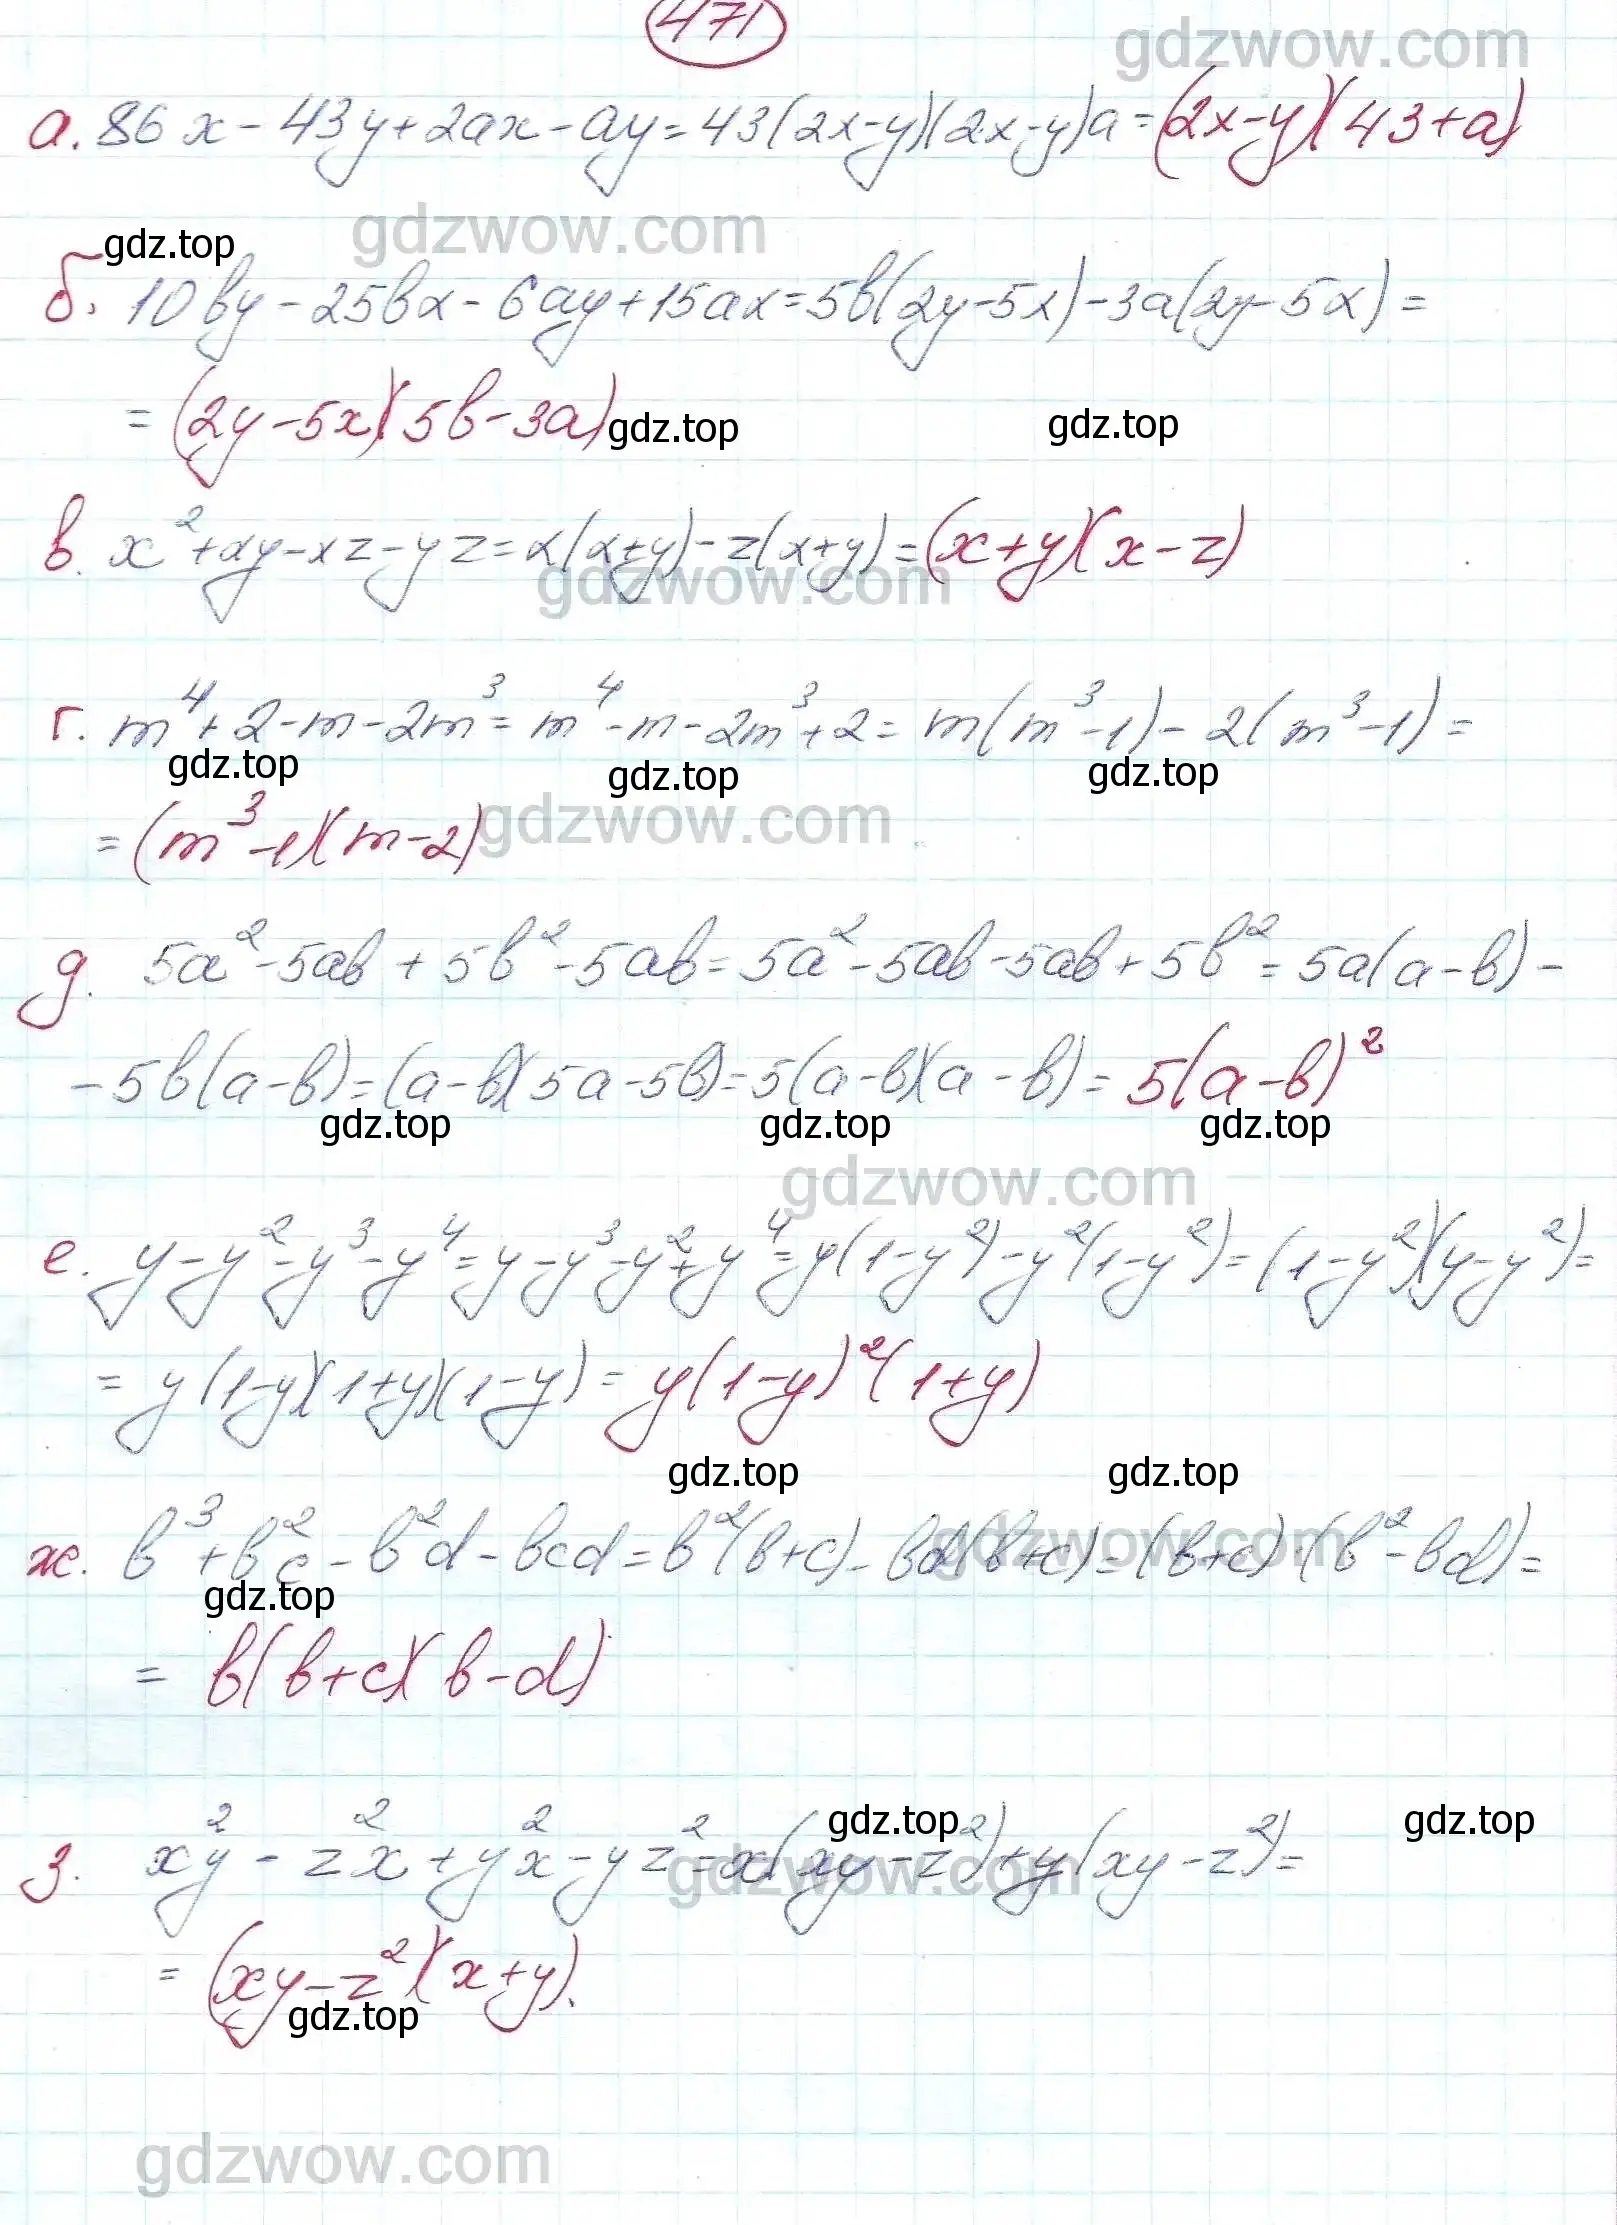 471
gdzwow.com
а. 86x - 43y + 2ax - ay = 43(2x-y)(2x-y)a = (2x-y)(43+a)
gdzwow.com
gdz.top
б. 10by - 25bx - 6ay + 15ax = 5b(2y-5x) - 3a(2y-5x) =
= (2y-5x)(5b-3a)
gdz.top gdz.top
в. x² + xy - xz - yz = x(x+y) - z(x+y) = (x+y)(x-z)
gdzwow.com
г. m⁴ + 2 - m - 2m³ = m⁴ - m - 2m³ + 2 = m(m³-1) - 2(m³-1) =
gdz.top gdz.top gdz.top
= (m³-1)(m-2)
gdzwow.com
д. 5a² - 5ab + 5b² - 5ab = 5a² - 5ab - 5ab + 5b² = 5a(a-b) -
- 5b(a-b) = (a-b)(5a-5b) = 5(a-b)(a-b) = 5(a-b)²
gdz.top gdz.top gdz.top
gdzwow.com
е. y - y² - y³ - y⁴ = y - y³ - y² + y⁴ = y(1-y²) - y²(1-y²) = (1-y²)(y-y²) =
= y(1-y)(1+y)(1-y) = y(1-y)²(1+y)
gdz.top gdz.top
ж. b³ + b²c - b²d - bcd = b²(b+c) - bd(b+c) = (b+c)·(b²-bd) =
gdzwow.com
gdz.top
= b(b+c)(b-d)
gdz.top gdz.top
з. x²y - z²x + y²x - yz² = x(xy-z²) + y(xy-z²) =
gdzwow.com
= (xy-z²)(x+y).
gdz.top
gdzwow.com